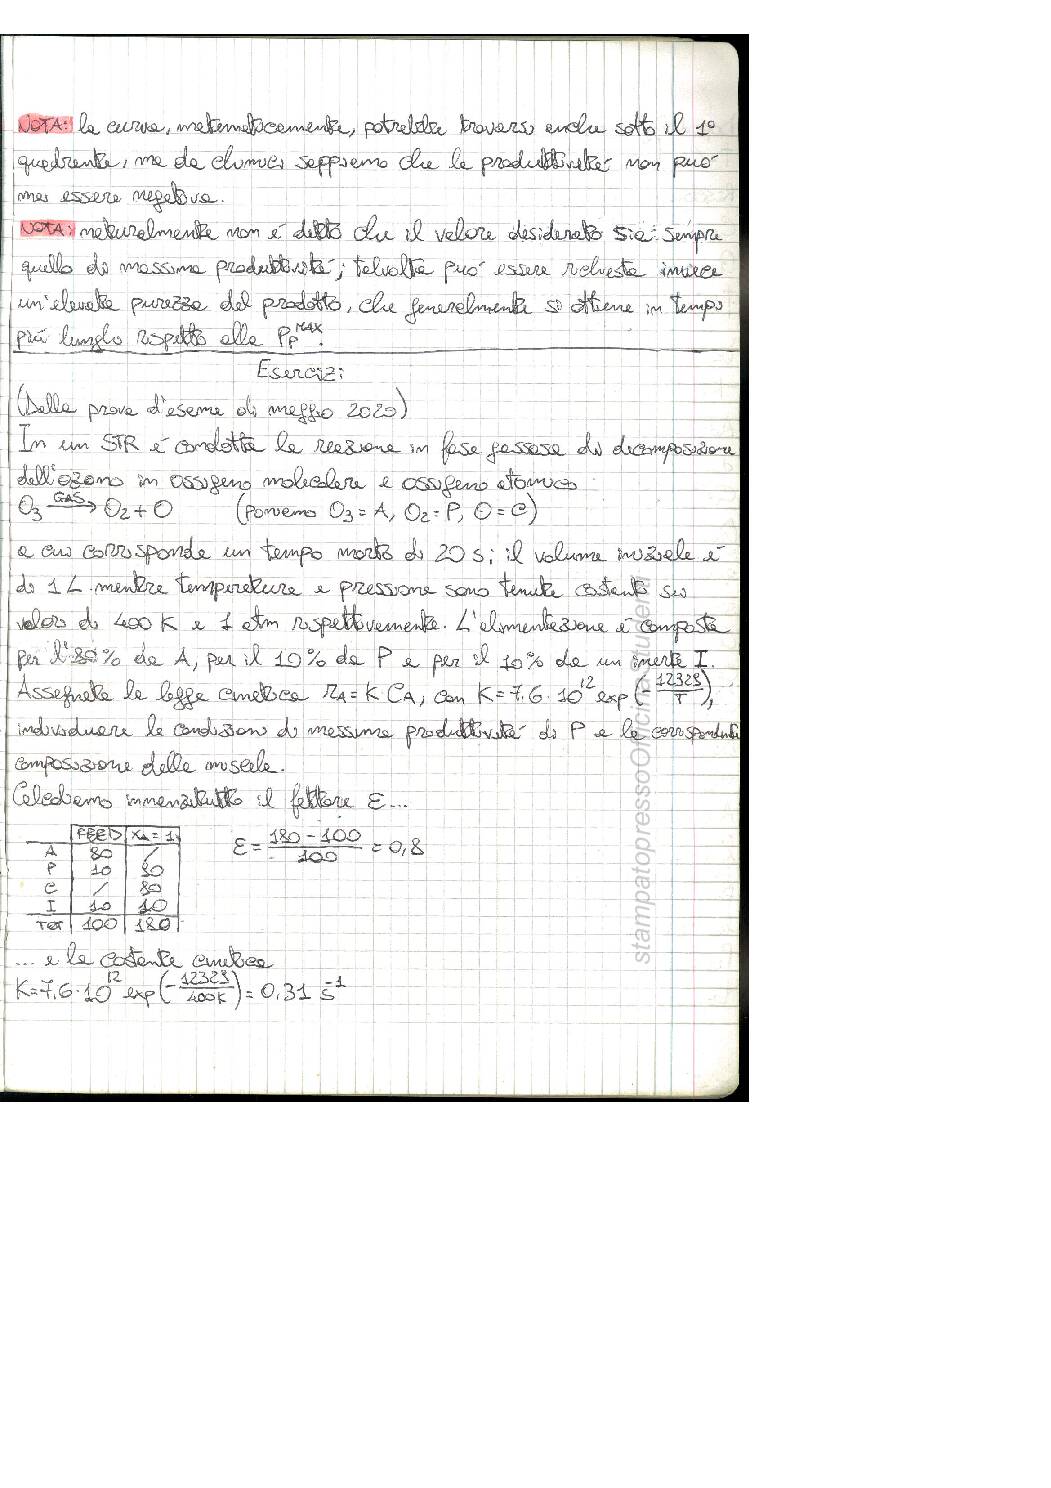 NOTA: la curva, matematicamente, potrebbe trovarsi anche sotto il 1°
quadrante, ma da chimici sappiamo che la produttività non può
mai essere negativa.
NOTA: naturalmente non è detto che il valore desiderato sia sempre
quello di massima produttività; talvolta può essere richiesta invece
un'elevata purezza del prodotto, che generalmente si ottiene in tempo
più lungo rispetto alla Pp^MAX.
Esercizi
(Dalla prova d'esame di maggio 2020)
In un STR è condotta la reazione in fase gassosa di decomposizione
dell'ozono in ossigeno molecolare e ossigeno atomico
O3 —GAS→ O2 + O (poniamo O3 = A, O2 = P, O = C)
a cui corrisponde un tempo morto di 20 s; il volume iniziale è
di 1 L mentre temperatura e pressione sono tenute costanti sui
valori di 400 K e 1 atm rispettivamente. L'alimentazione è composta
per l'80% da A, per il 10% da P e per il 10% da un inerte I.
Assegnata la legge cinetica rA = K CA, con K = 7,6 · 10^12 exp(-12329/T),
individuare le condizioni di massima produttività di P e la corrispondente
composizione della miscela.
Calcoliamo innanzitutto il fattore ε...
FEED XA = 1
A 80 /
P 10 90
C / 80
I 10 10
TOT 100 180
ε = (180 - 100)/100 = 0,8
... e la costante cinetica
K = 7,6 · 10^12 exp(-12329/400K) = 0,31 s^-1
stampatopressoOfficinaStudenti